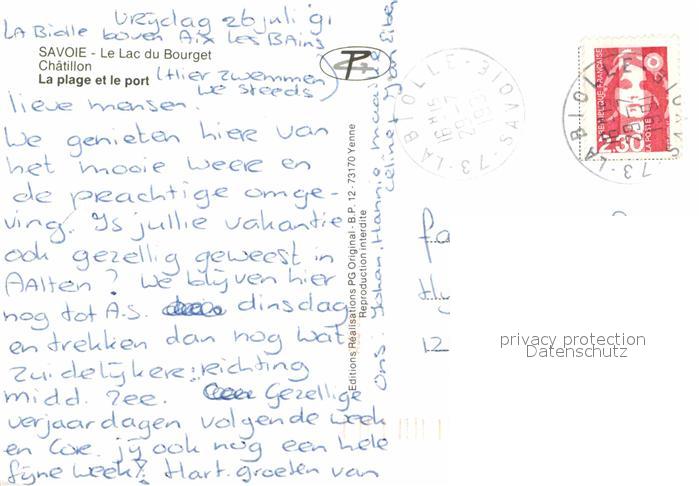 Vrijdag 26 juli 91
La Biolle boven Aix les Bains
SAVOIE - Le Lac du Bourget
Châtillon
La plage et le port
(Hier zwemmen
we steeds)
lieve mensen.
We genieten hier van
het mooie weer en
de prachtige omge-
ving. Is jullie vakantie
ook gezellig geweest in
Aalten? We blijven hier
nog tot A.S. dinsdag
en trekken dan nog wat
zuidelijkere richting
midd. zee. Gezellige
verjaardagen volgende week
en Cor. jij ook nog een hele
fijne week! Hart. groeten van
ons: Johan, Hannie,
Celine
Editions Réalisations PG Original - B.P. 12 - 73170 Yenne
Reproduction interdite
73 - LA BIOLLE - SAVOIE
16 H15
29-7
RÉPUBLIQUE FRANÇAISE
2,30
LA POSTE
73 - LA BIOLLE - SAVOIE
fa
12
privacy protection
Datenschutz